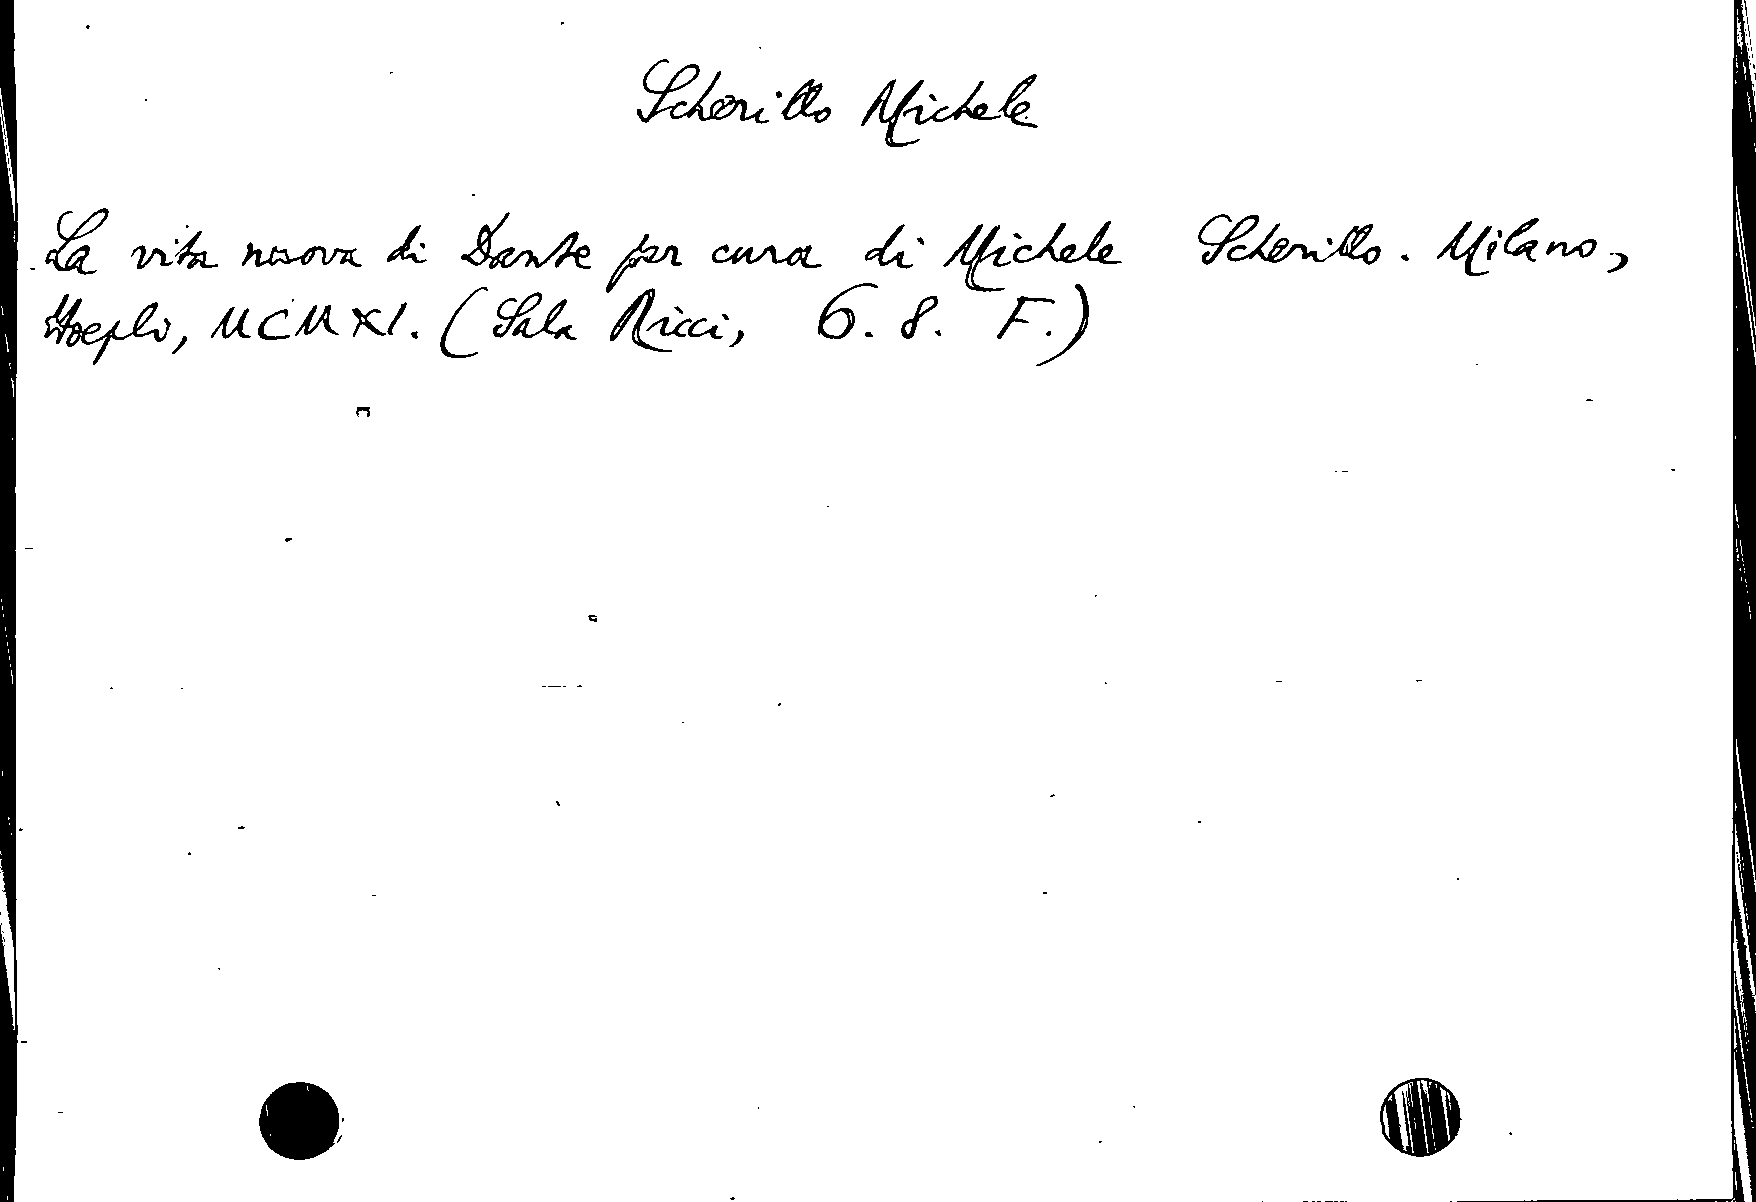 Scherillo Michele
La vita nuova di Dante per cura di Michele Scherillo. Milano,
Hoepli, MCMXI. (Sala Ricci, 6. 8. F.)